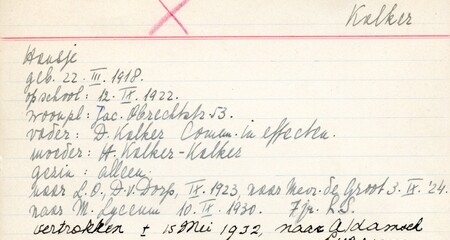 Kalker
Hansje
geb. 22. III. 1918.
op school: 12. IX. 1922.
woonpl: Jac. Obrechtstr. 53.
vader: D. Kalker Comm. in effecten.
moeder: H. Kalker-Kalker
gezin: alleen.
naar L.O., D.v. Dorp, IX. 1923, naar Mevr. de Groot 3. IX. '24.
naar M. Lyceum 10. IX. 1930. 7 jr. L.S.
vertrokken ± 15 Mei 1932, naar A'damsch